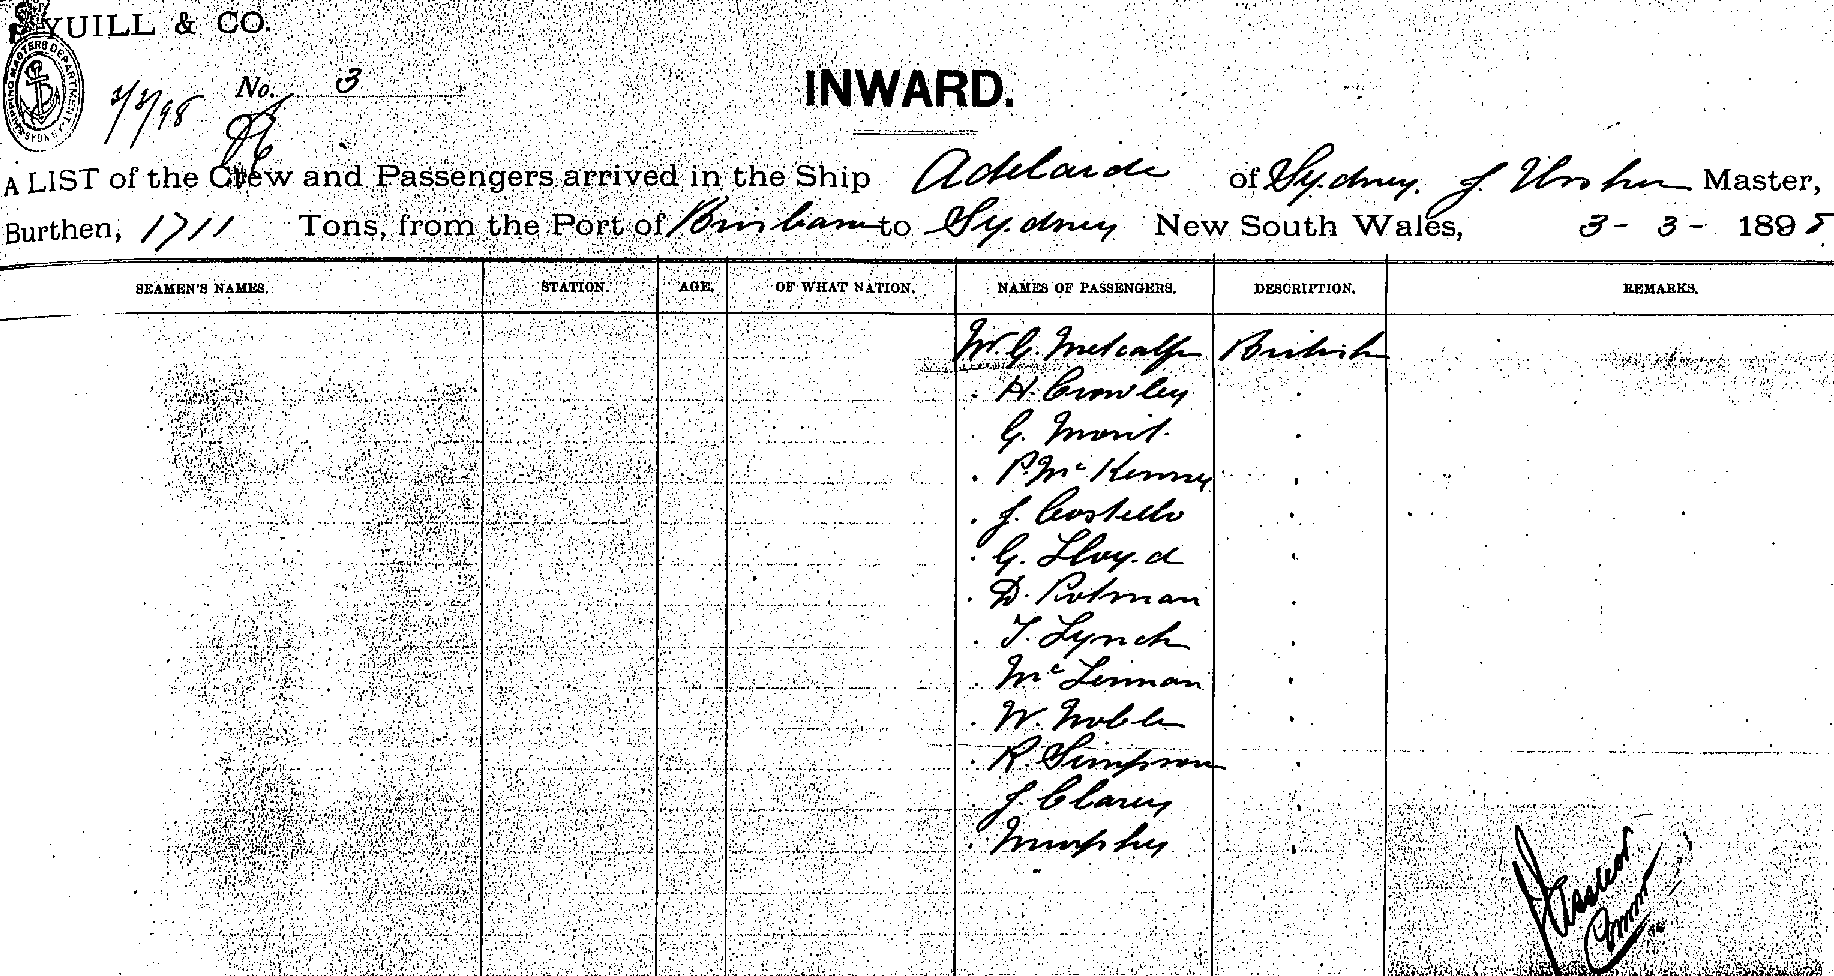 YUILL & CO.
No. 3
INWARD.
A LIST of the Crew and Passengers arrived in the Ship Adelaide of Sydney. J. Master,
Burthen, 1711 Tons, from the Port of Brisbane to Sydney New South Wales, 3 - 3 - 1898
SEAMEN'S NAMES. STATION. AGE. OF WHAT NATION. NAMES OF PASSENGERS. DESCRIPTION. REMARKS.
Mr G. Metcalfe British
H. Crowley
G.
P. McKenney
J. Costello
G. Lloyd
D. Rotman
T. Lynch
McLennan
W. Noble
R. Simpson
J. Clarey
Murphy